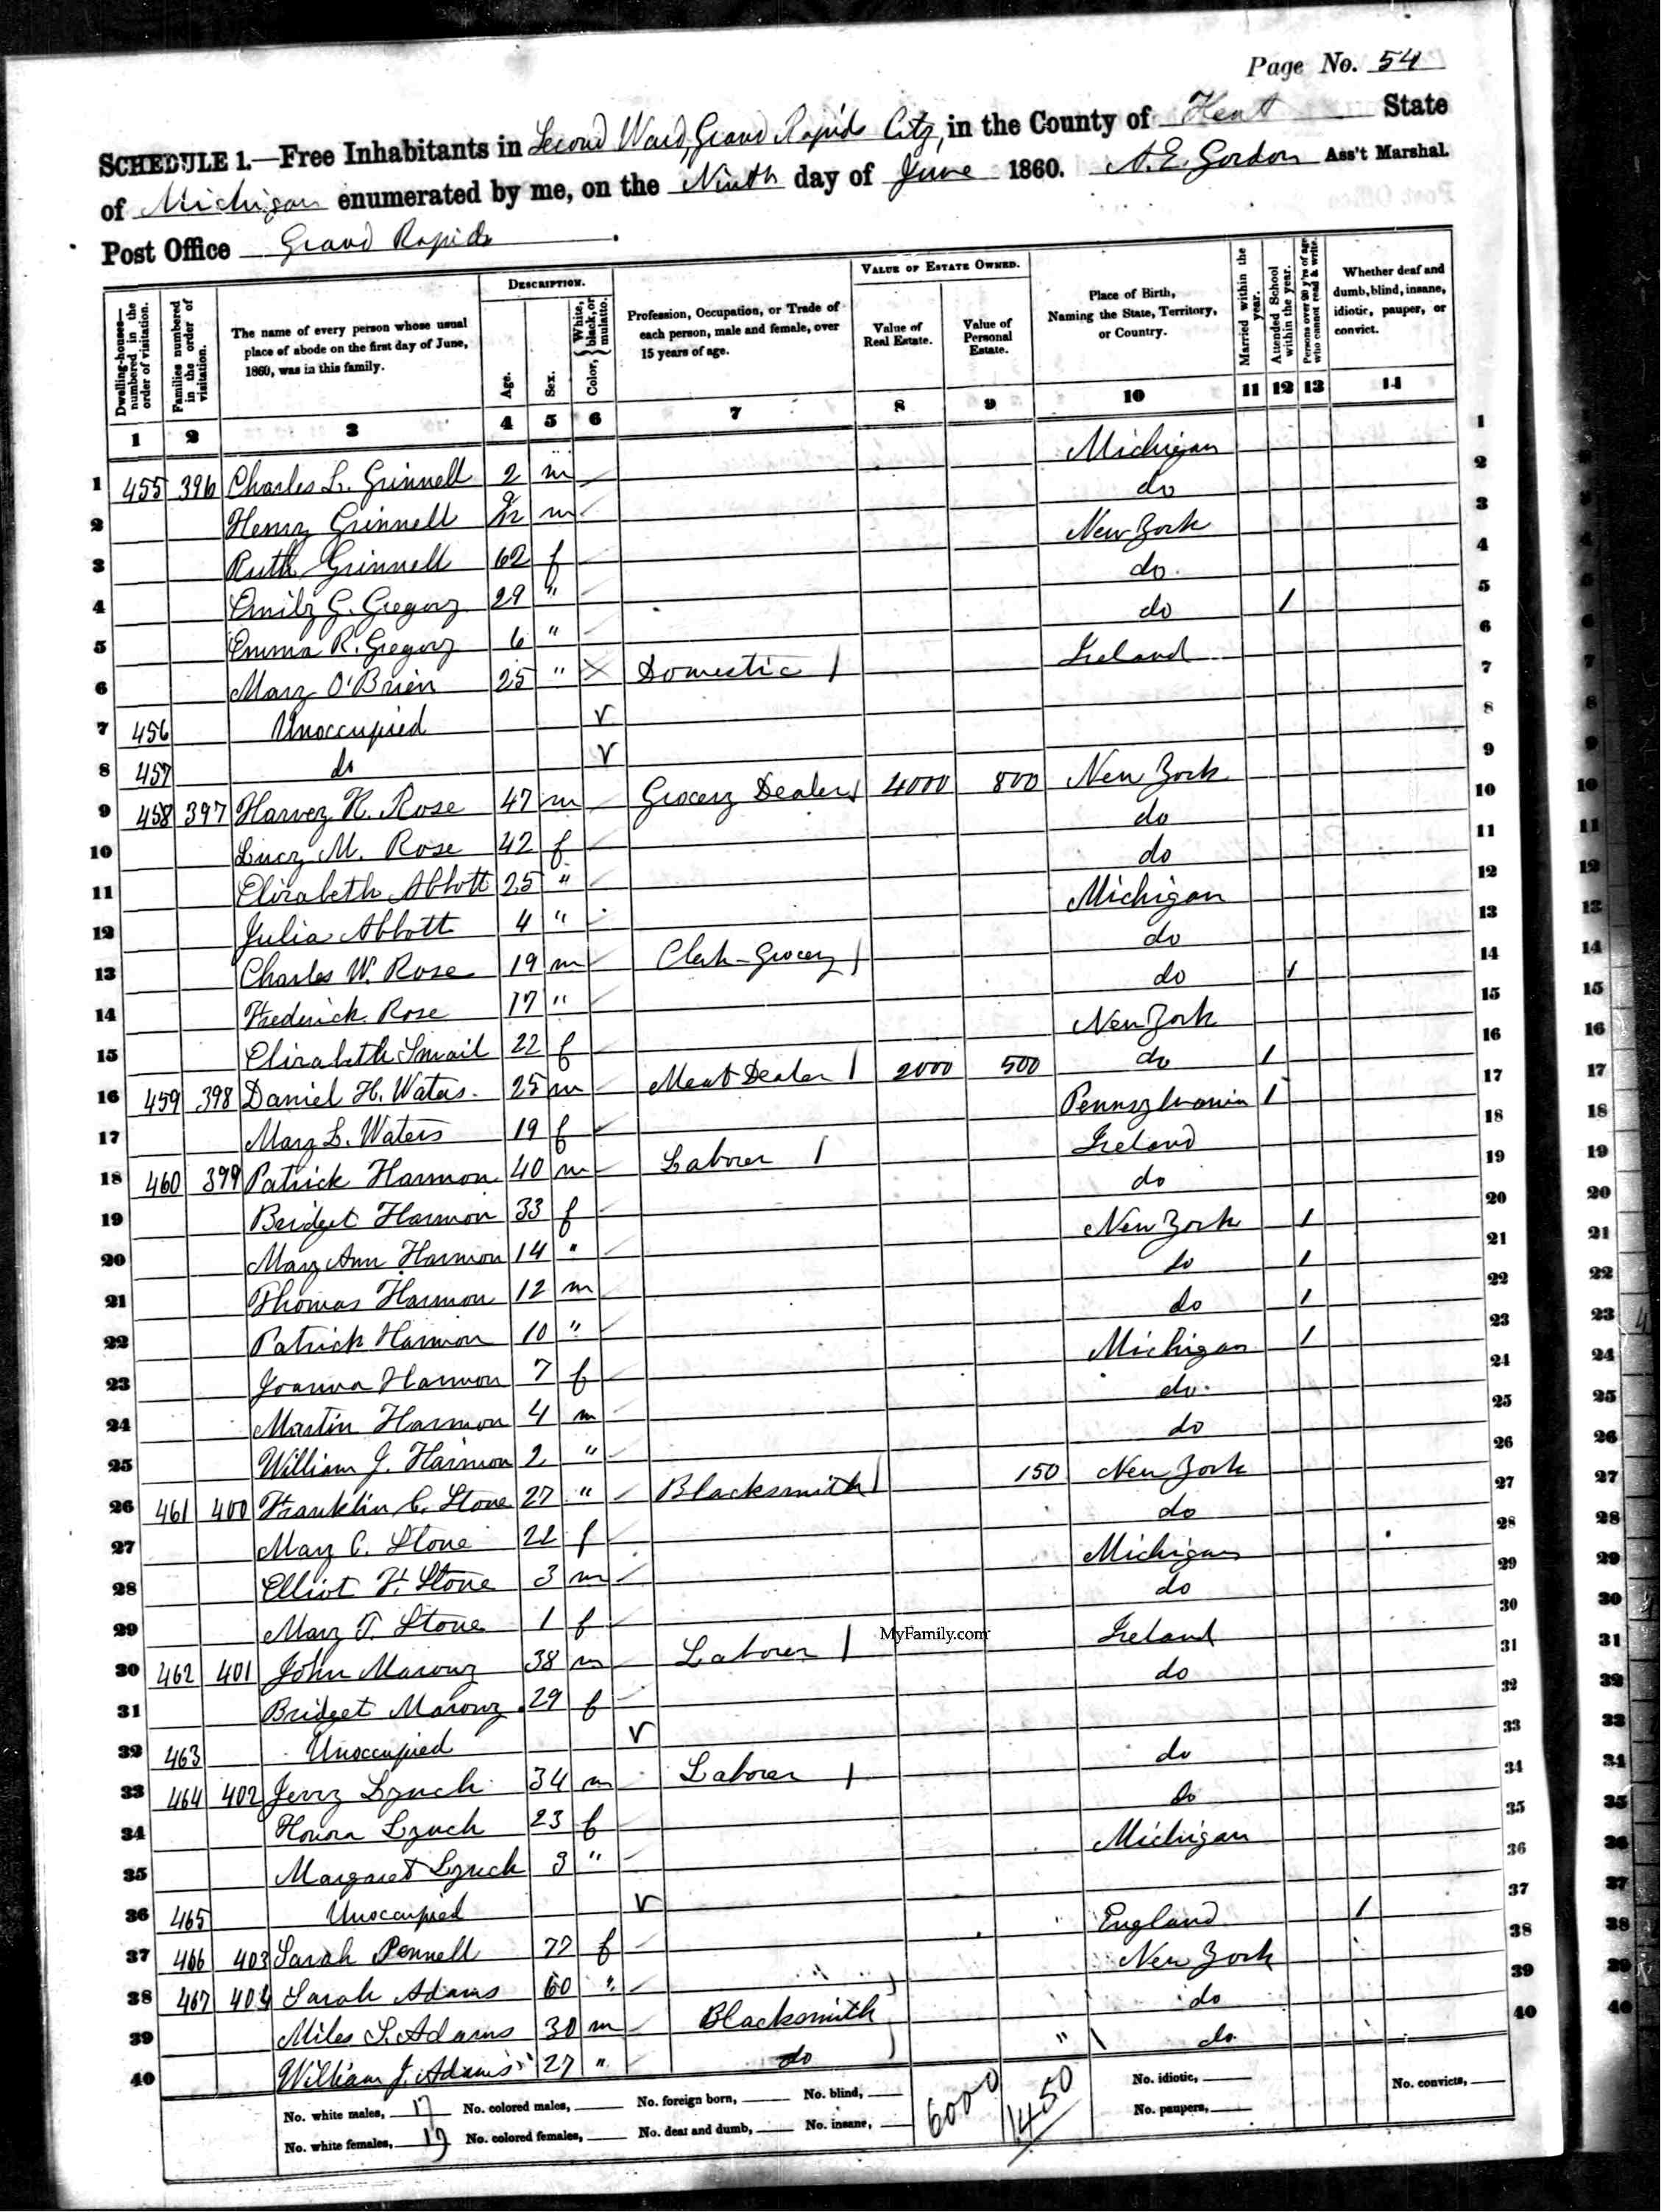 Page No. 54
SCHEDULE 1.—Free Inhabitants in Second Ward, Grand Rapids City, in the County of Kent State
of Michigan enumerated by me, on the Ninth day of June 1860. A. E. Gordon Ass't Marshal.
Post Office Grand Rapids
Dwelling-houses—numbered in the order of visitation. Families numbered in the order of visitation. The name of every person whose usual place of abode on the first day of June, 1860, was in this family. DESCRIPTION. Age. Sex. Color, White, black, or mulatto. Profession, Occupation, or Trade of each person, male and female, over 15 years of age. VALUE OF ESTATE OWNED. Value of Real Estate. Value of Personal Estate. Place of Birth, Naming the State, Territory, or Country. Married within the year. Attended School within the year. Persons over 20 y'rs of age who cannot read & write. Whether deaf and dumb, blind, insane, idiotic, pauper, or convict.
1 2 3 4 5 6 7 8 9 10 11 12 13 14
1 455 396 Charles L. Grinnell 2 m Michigan 1
2 Henry Grinnell 2/12 m do 2
3 Ruth Grinnell 62 f New York 3
4 Emily G. Gregory 29 " do. 4
5 Emma R. Gregory 6 " do / 5
6 Mary O'Brien 25 " Domestic / Ireland 6
7 456 Unoccupied V 7
8 457 do V 8
9 458 397 Harvey K. Rose 47 m Grocery Dealer / 4000 800 New York 9
10 Lucy M. Rose 42 f do 10
11 Elizabeth Abbott 25 " do 11
12 Julia Abbott 4 " Michigan 12
13 Charles W. Rose 19 m Clerk - Grocery / do 13
14 Frederick Rose 17 " do / 14
15 Elizabeth Smail 22 f New York 15
16 459 398 Daniel H. Waters. 25 m Meat Dealer / 2000 500 do / 16
17 Mary L. Waters 19 f Pennsylvania / 17
18 460 399 Patrick Harmon 40 m Laborer / Ireland 18
19 Bridget Harmon 33 f do 19
20 Mary Ann Harmon 14 " New York / 20
21 Thomas Harmon 12 m do / 21
22 Patrick Harmon 10 " do / 22
23 Joanna Harmon 7 f Michigan / 23
24 Martin Harmon 4 m do. 24
25 William J. Harmon 2 " do 25
26 461 400 Franklin C. Stone 27 " Blacksmith / 150 New York 26
27 Mary C. Stone 22 f do 27
28 Elliot F. Stone 3 m Michigan 28
29 Mary T. Stone 1 f do 29
MyFamily.com
30 462 401 John Marony 38 m Laborer / Ireland 30
31 Bridget Marony 29 f do 31
32 463 Unoccupied V 32
33 464 402 Jerry Lynch 34 m Laborer / do 33
34 Honora Lynch 23 f do 34
35 Margaret Lynch 3 " Michigan 35
36 465 Unoccupied V 36
37 466 403 Sarah Pennell 77 f England / 37
38 467 404 Sarah Adams 60 " New York 38
39 Miles S. Adams 30 m Blacksmith do 39
40 William J. Adams 27 " do do 40
No. white males, 17 No. colored males, No. foreign born, No. blind, 6000 1450 No. idiotic, No. convicts,
No. white females, 19 No. colored females, No. deaf and dumb, No. insane, No. paupers,